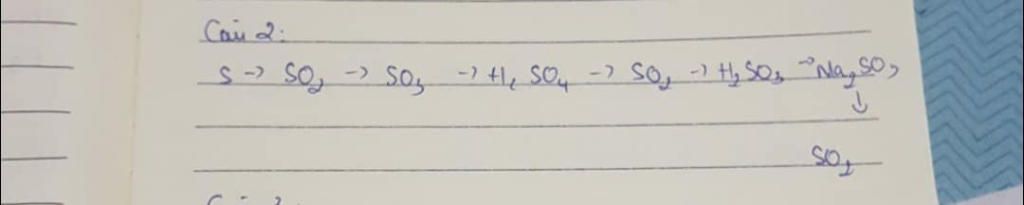 Câu 2:
S → SO2 → SO3 → H2SO4 → SO2 → H2SO3 → Na2SO3
↓
SO2